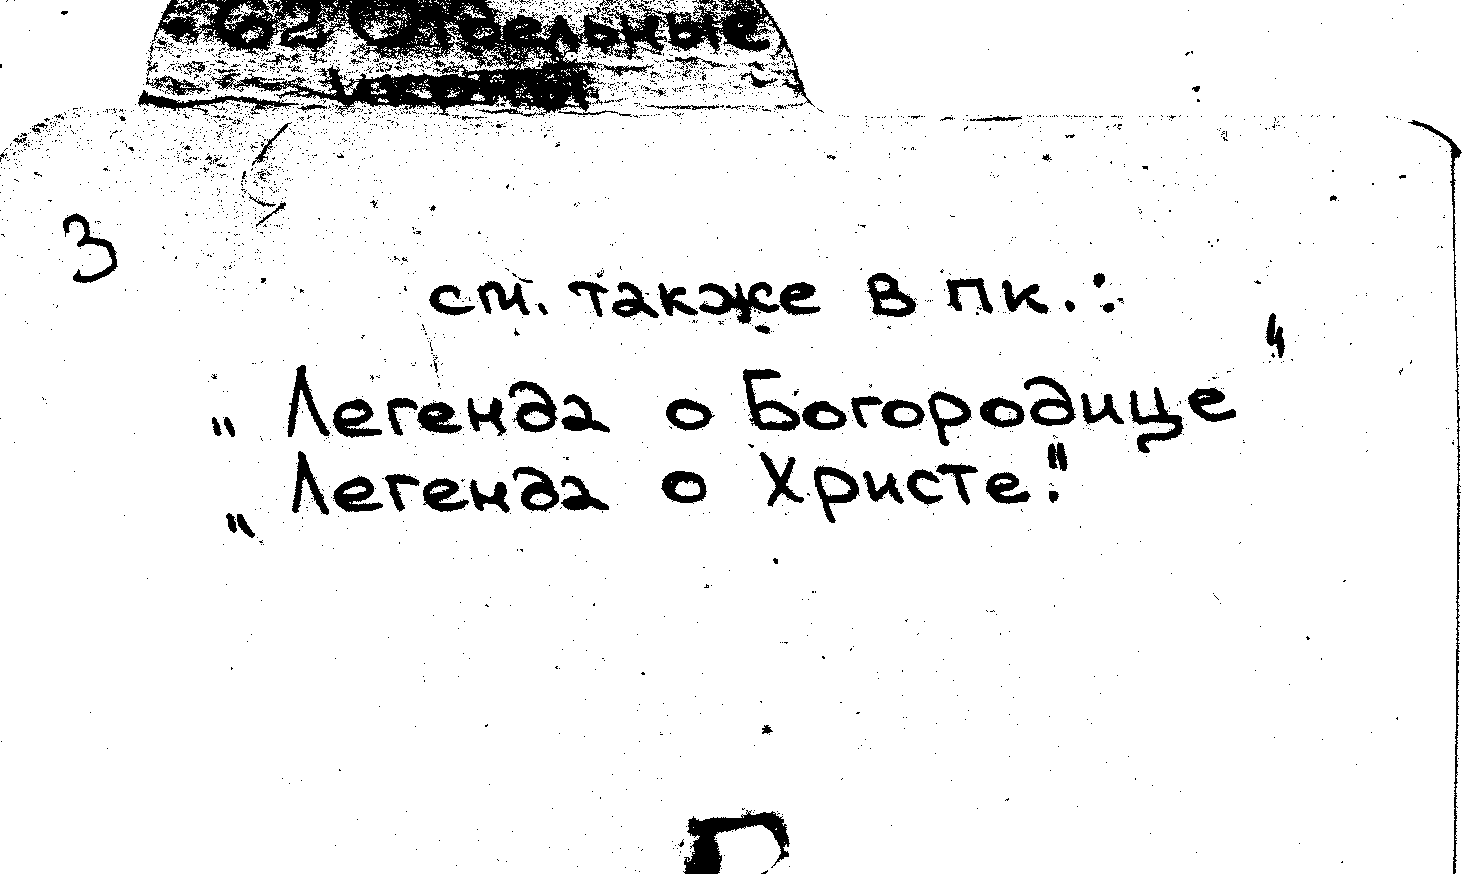 62 Отдельные
иконы
3
см. также в пк.:
„Легенда о Богородице"
„Легенда о Христе".